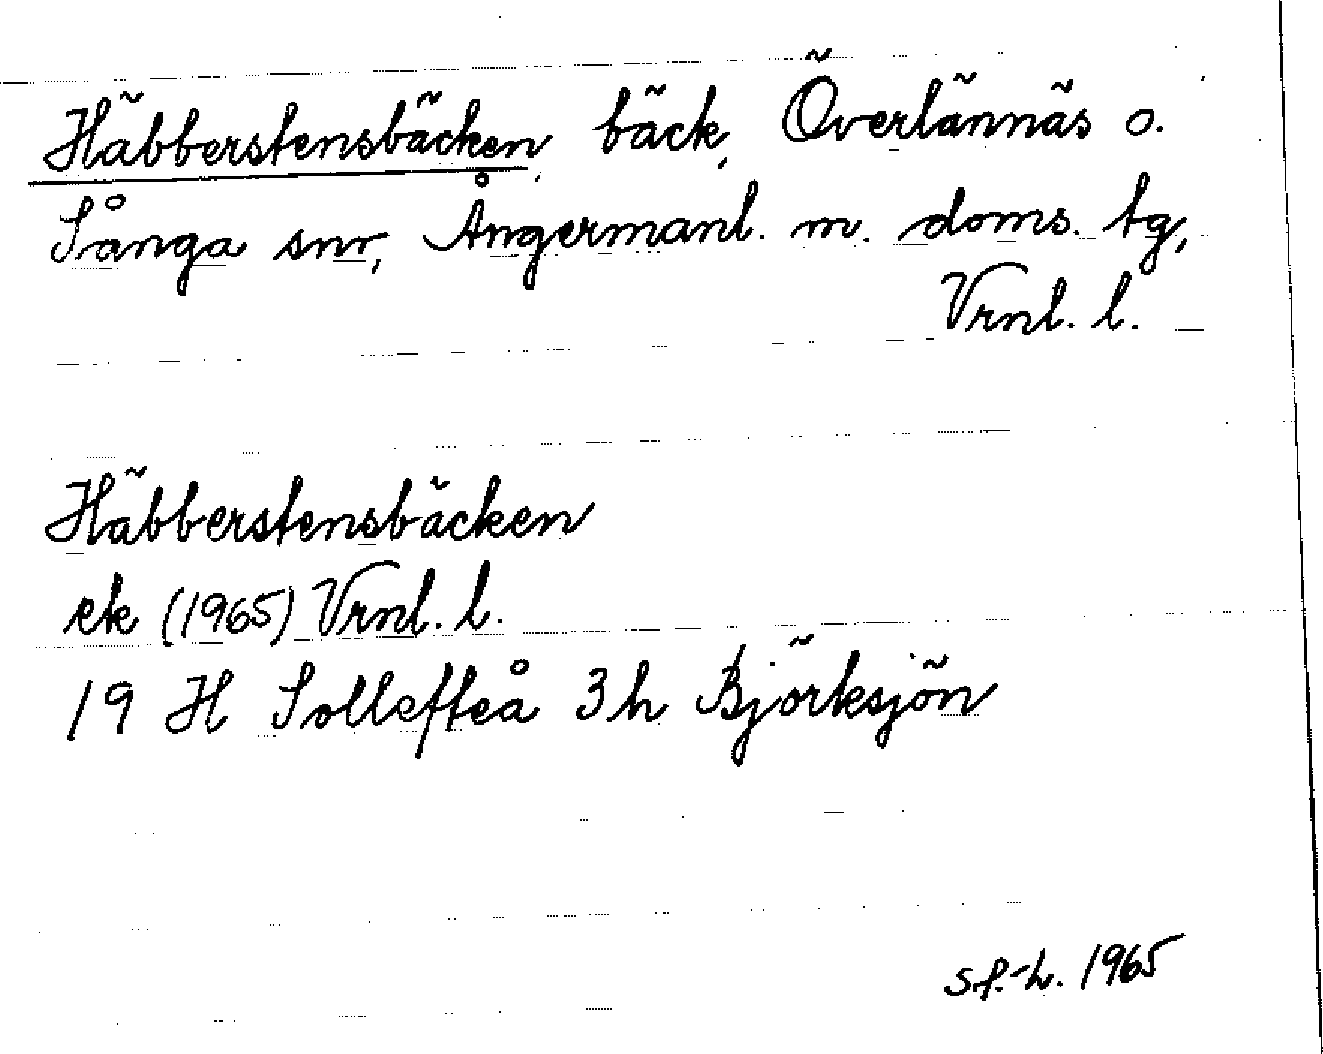 Häbberstensbäcken, bäck, Överlännäs o.
Sånga snr, Ångermanl. m. doms. tg,
Vrnl. l.
Häbberstensbäcken
ek (1965) Vrnl. l.
19 H Sollefteå 3h Björksjön
sf.-h. 1965